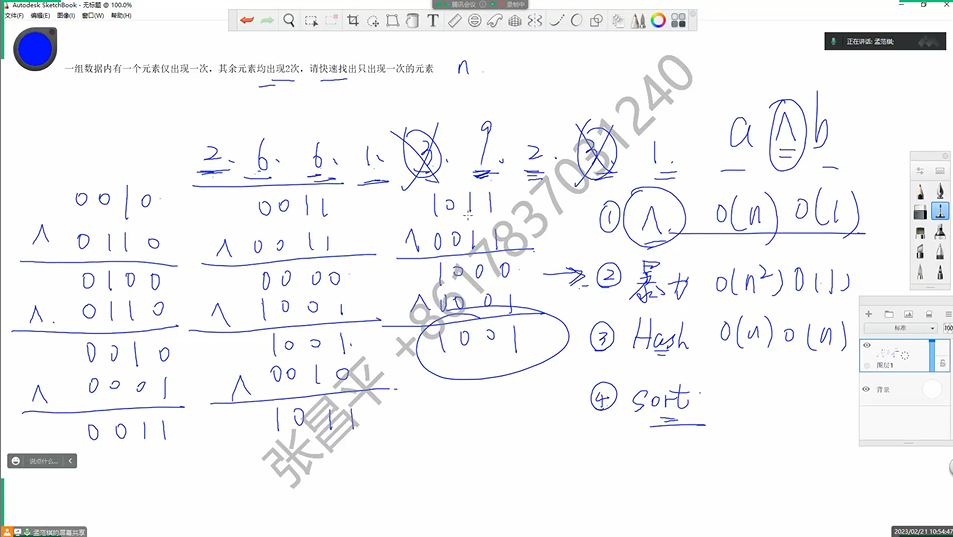 Autodesk SketchBook - 无标题 @ 100.0%
腾讯会议 录制中
文件(F) 编辑(E) 图像(I) 窗口(W) 帮助(H)
正在讲话: 孟范棋;
一组数据内有一个元素仅出现一次，其余元素均出现2次，请快速找出只出现一次的元素 n
2. 6. 6. 1. 3. 9. 2. 3. 1.
a ^ b
0010
^ 0110
0100
^ 0110
0010
^ 0001
0011
0011
^ 0011
0000
^ 1001
1001
^ 0010
1011
1011
^ 0011
1000
^ 0001
1001
① ^ O(n) O(1)
② 暴力 O(n²) O(1)
③ Hash O(n) O(n)
④ sort
标准 100
图层1
背景
说点什么...
孟范棋的屏幕共享
2023/02/21 10:54:47
张昌平 +8617837031240